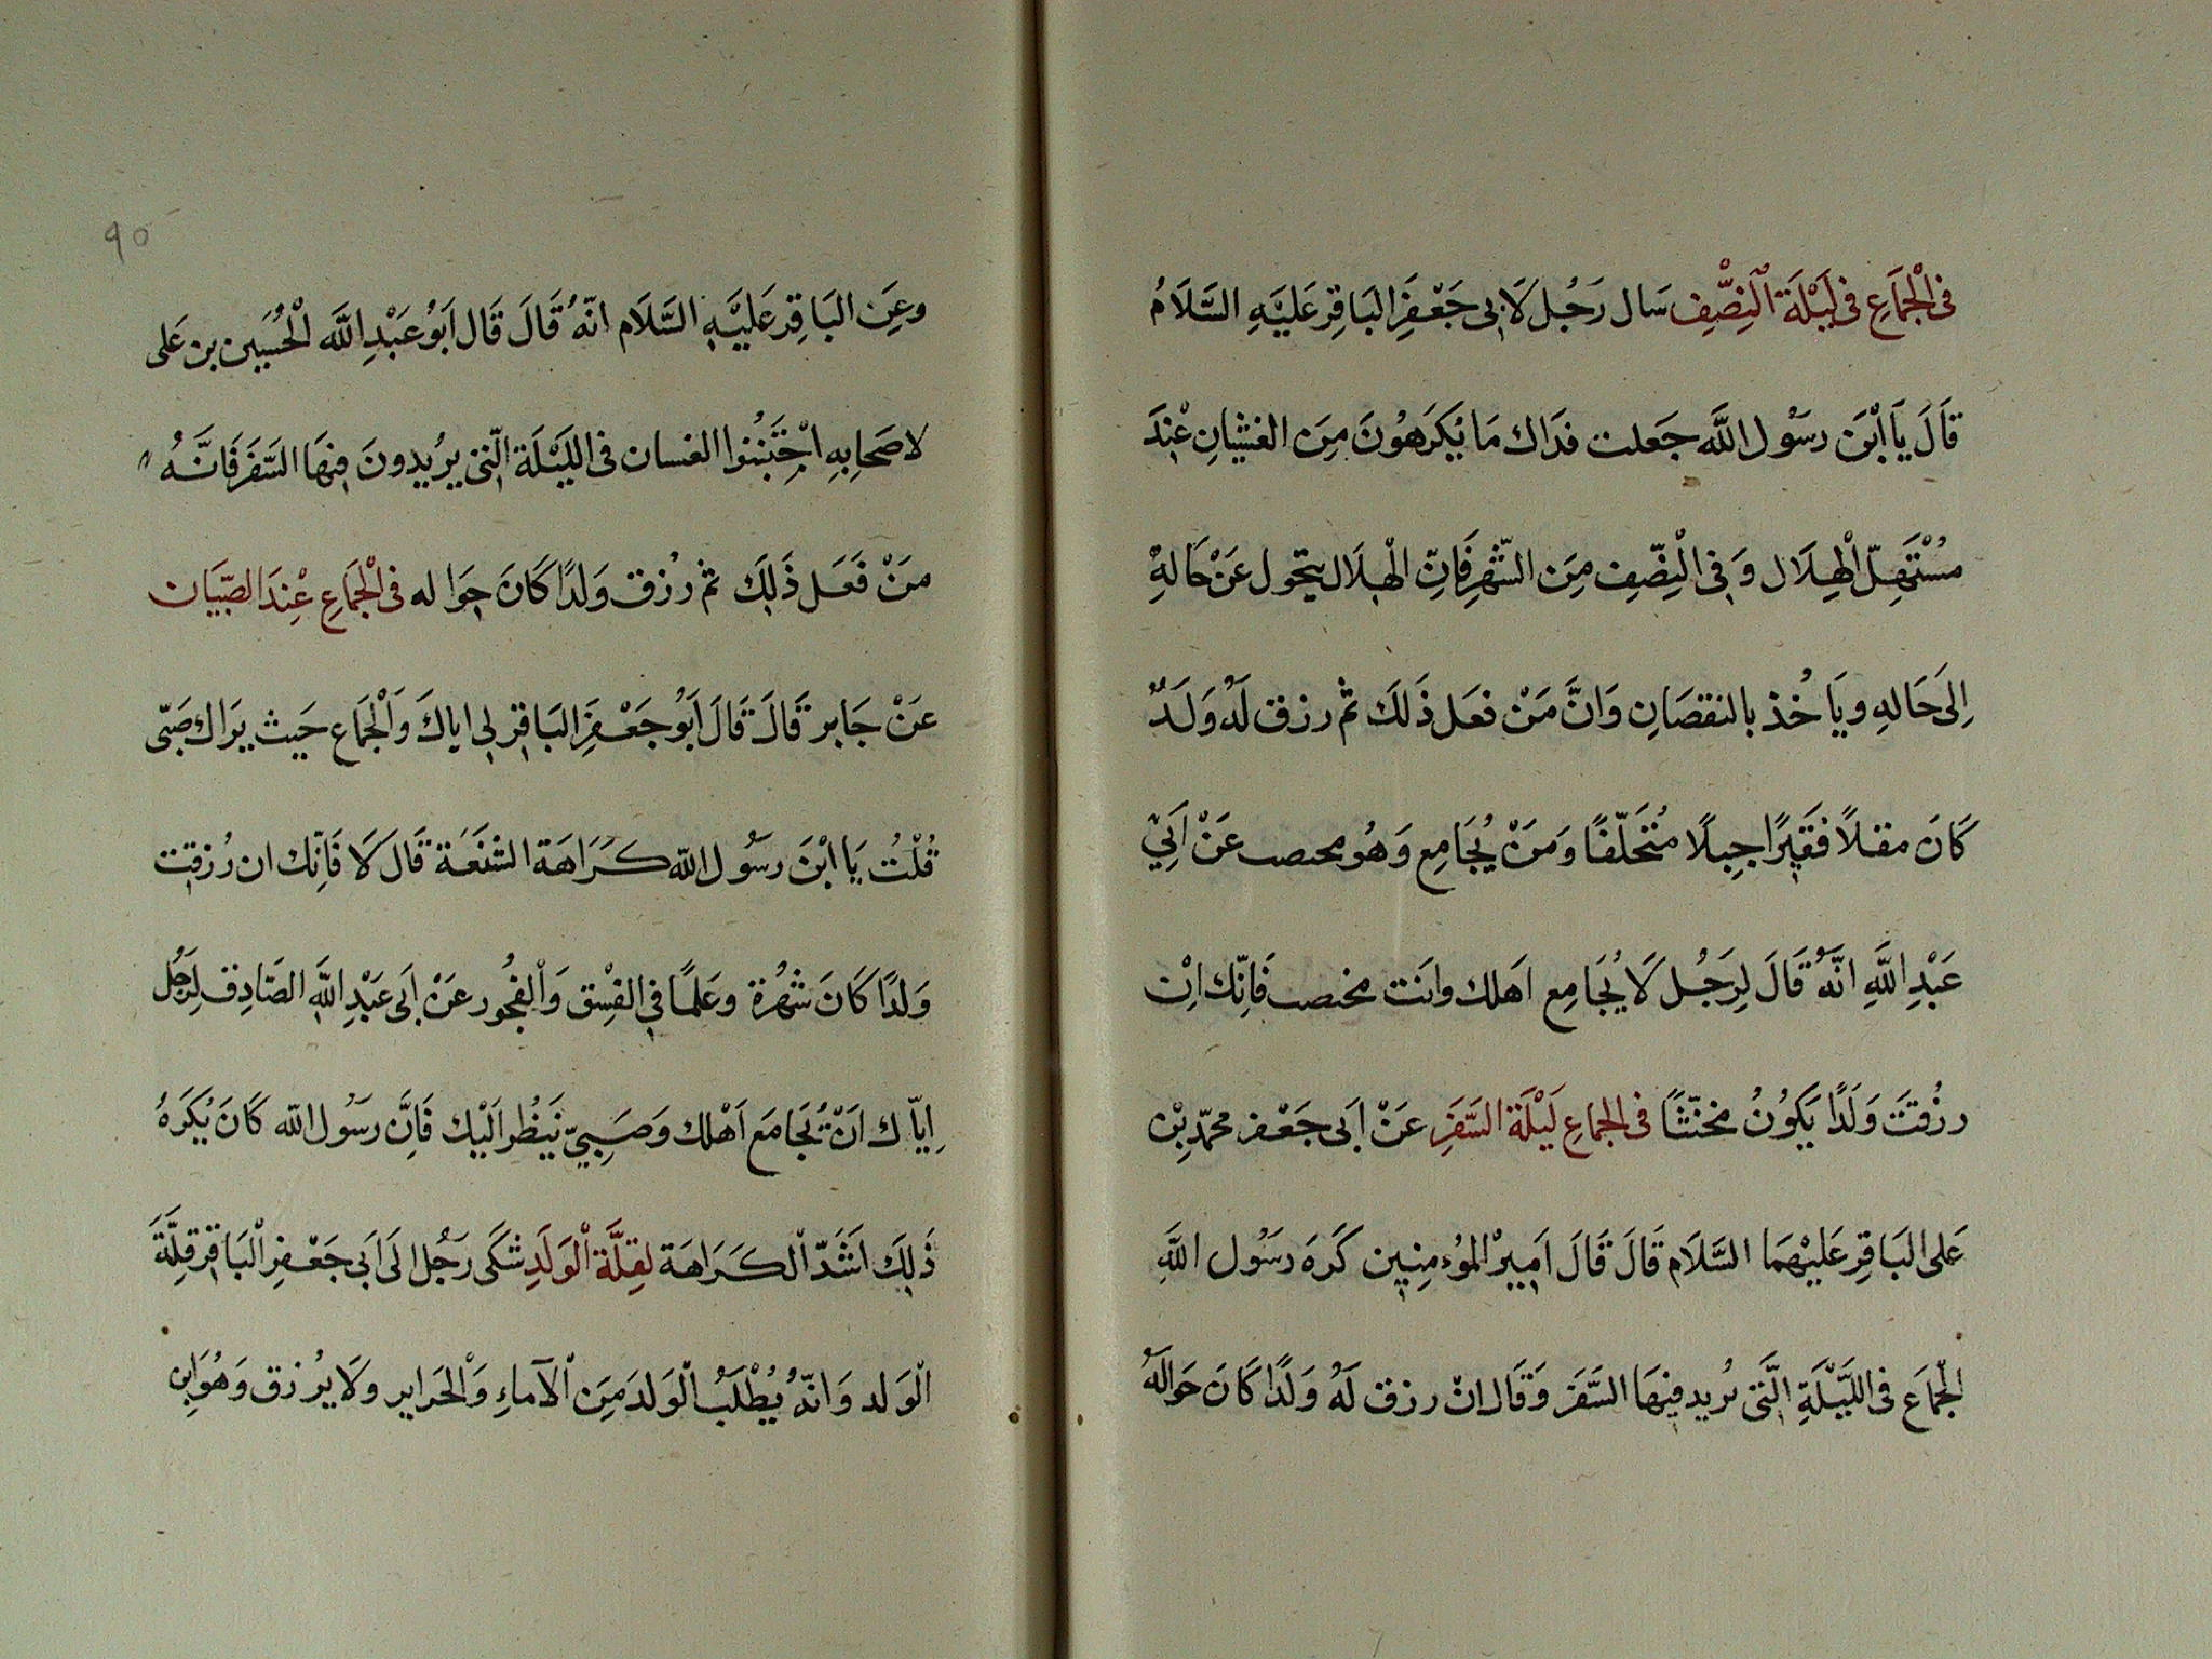 فى الْجِمَاعِ فى لَيْلَةِ الْنِصّْفِ سَال رَجُل لَابى جَعْفَرِ البَاقِرِ عَلَيَّهِ السَّلَامُ
قَالَ يَا ابْنَ رسَوُل اللَّه جَعلت فدَاك مَا يُكَرَهُونَ مِنَ الغشيانِ عْنِدَ
مسُتَهِلّ الْهِلَال وَ فى الْنِصّفِ مِنَ الشّهْرِ فَانِّ الْهلَال يتحَول عَنْ حَالهِ
اِلىَ حَالهِ ويَاخُذ بالنقصَانِ وَانَّ مَنْ فعَل ذَلكَ ثمْ رزق لَهُ وَلَدٌ
كَانَ مقلاً فقَيرًا جِبلًا مُتَخَلّفًا وَمَنْ يُجَامِع وَهُو محتصب عَنْ اَبِيْ
عَبْدِ اللَّهِ انَّهُ قَالَ لِرَجُل لَا يُجَامِع اَهلك وانَت مختصب فَانِّك اِنْ
رزُقتَ وَلَدًا يَكوُنُ مخنّثًا فى الجماعِ لَيْلَةَ السَّفَرِ عَنْ اَبى جَعْفر محمّد بِنْ
عَلى البَاقِرِ عَليَهْمَا السَّلَام قَالَ قَالَ اَمِيرْ الموُءمِنِين كَرَه رسَوُل اللَّهِ
الجْمَاعَ فى اللَّيَّلَةِ الَّتى يُريد فيهَا السَّفَر وَقَال انْ رزق لَهُ وَلَدًا كَانَ حَوالَهُ
٩٥
وعَنِ البَاقِرِ عَليَّهِ السَّلَام انّهُ قَالَ قَال اَبَوُ عَبْدِ اللَّه الْحُسَين بن عَلى
لاصَحابهِ اجْتَنُبُوا الغسان فى اللَيَّلَة الّتى يرُيدونَ فيهَا السَّفَرَ فَانَّهُ
منَ فَعَل ذَلِكَ ثمْ رزُق وَلدًا كَانَ جَوَا له فى الْجمَاعِ عْنِدَ الصّبَيَان
عَنْ جَابر قَالَ قَالَ اَبوُ جَعْفَرِ البَاقِر لى اياكَ وَالْجمَاع حَيث يرَاك صَبّى
قُلْتُ يَا ابْنَ رسَوُل اللّه كَرَاهَة الشنعَة قَال لَا فَانِّك ان رُزقت
وَلدًا كَانَ شهُرَة وعَلمًا فى الفِسْق وَالفُجُور عَنْ اَبى عَبْدِ اللَّهِ الصَادِق لِرَجُل
اِيّاك اَنْ تُجَامَع اَهْلك وَصَبىّ يَنظُر الَيْك فَانَّ رسَوُل اللّه كَانَ يُكَرَهُ
ذَلِكَ اَشَدّ الكَرَاهَة لِقِلَّةَ الْوَلَدِ شكَى رَجُل الَى اَبى جَعْفرِ الْبَاقِرِ قِلَّةَ
الْوَلد وَانّهُ يُطْلَبُ الْوَلدَ مِنَ الْآماءِ وَالْحَراير ولَا يرُزق وَهُوَ ابن